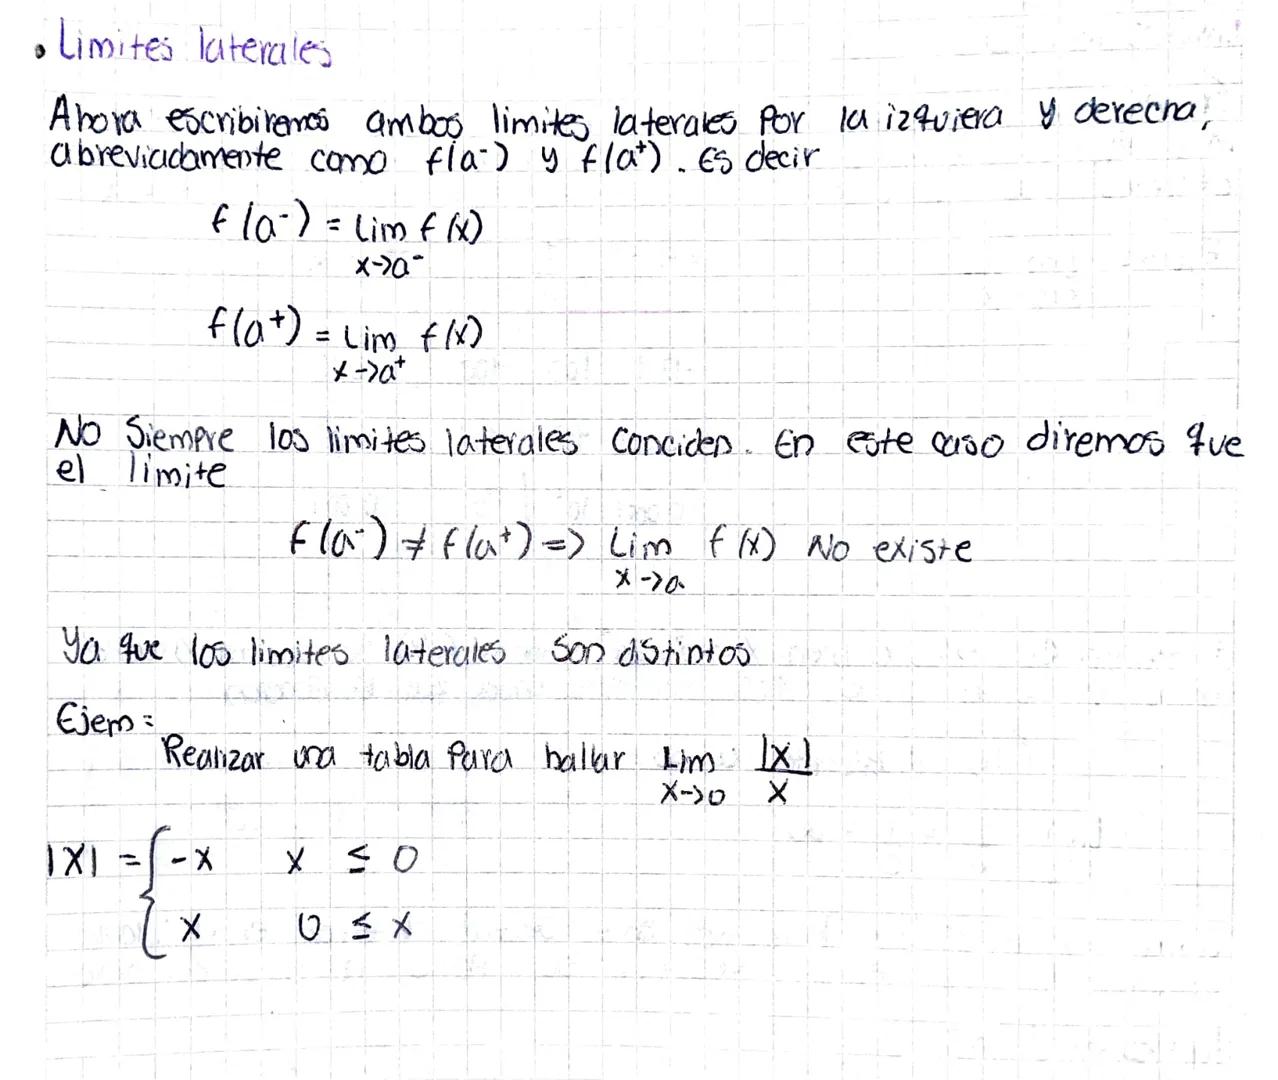 • Limites laterales
Ahora escribiremos ambos limites laterales Por la izquiera y derecha,
abreviadamente como f(a⁻) y f(a⁺). Es decir
f(a⁻) = Lim f(x)
x->a⁻
f(a⁺) = Lim f(x)
x->a⁺
No Siempre los limites laterales Conciden. En este caso diremos que
el limite
f(a⁻) ≠ f(a⁺) => Lim f(x) No existe
x->a
Ya que los limites laterales Son distintos
Ejem:
Realizar una tabla Para hallar Lim |x|/x
x->0
|x| = { -x x ≤ 0
x 0 ≤ x